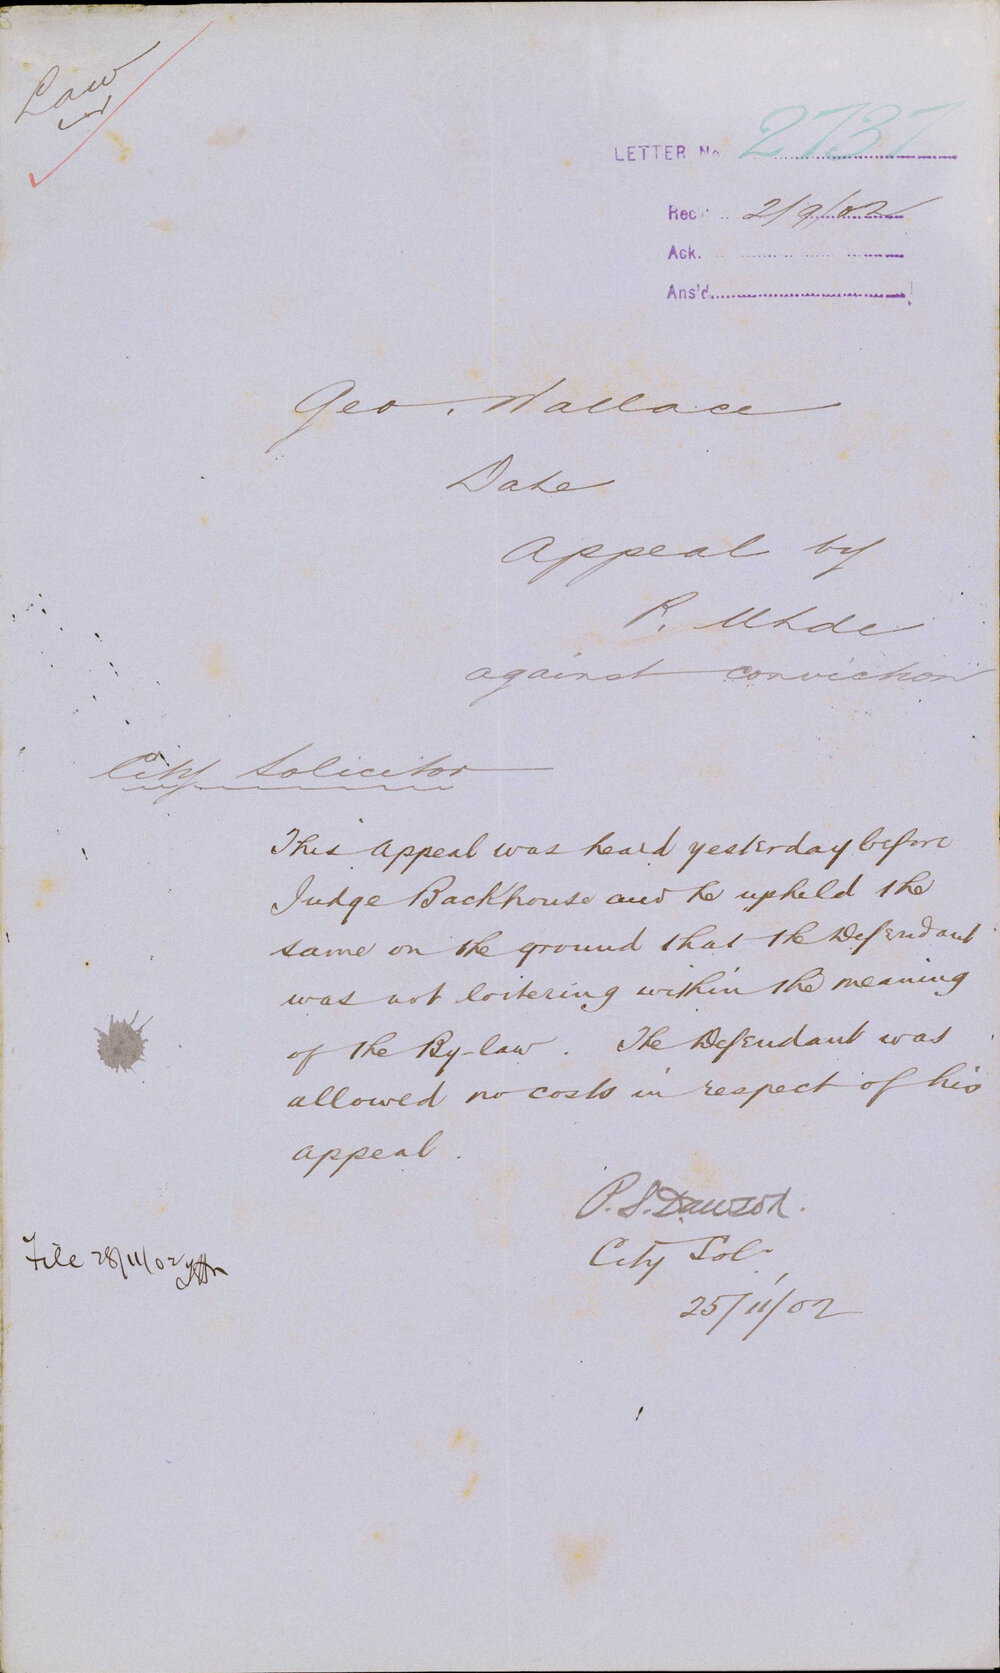 Law
LETTER No 2737
Rec'd 2/9/02
Ack.
Ans'd
Geo. Wallace
Date
Appeal by
P. Uhde
against conviction
City Solicitor
This appeal was heard yesterday before
Judge Backhouse and he upheld the
same on the ground that the Defendant
was not loitering within the meaning
of the By-law. The Defendant was
allowed no costs in respect of his
appeal.
P.S. Dawson.
City Sol.
25/11/02
File 28/11/02